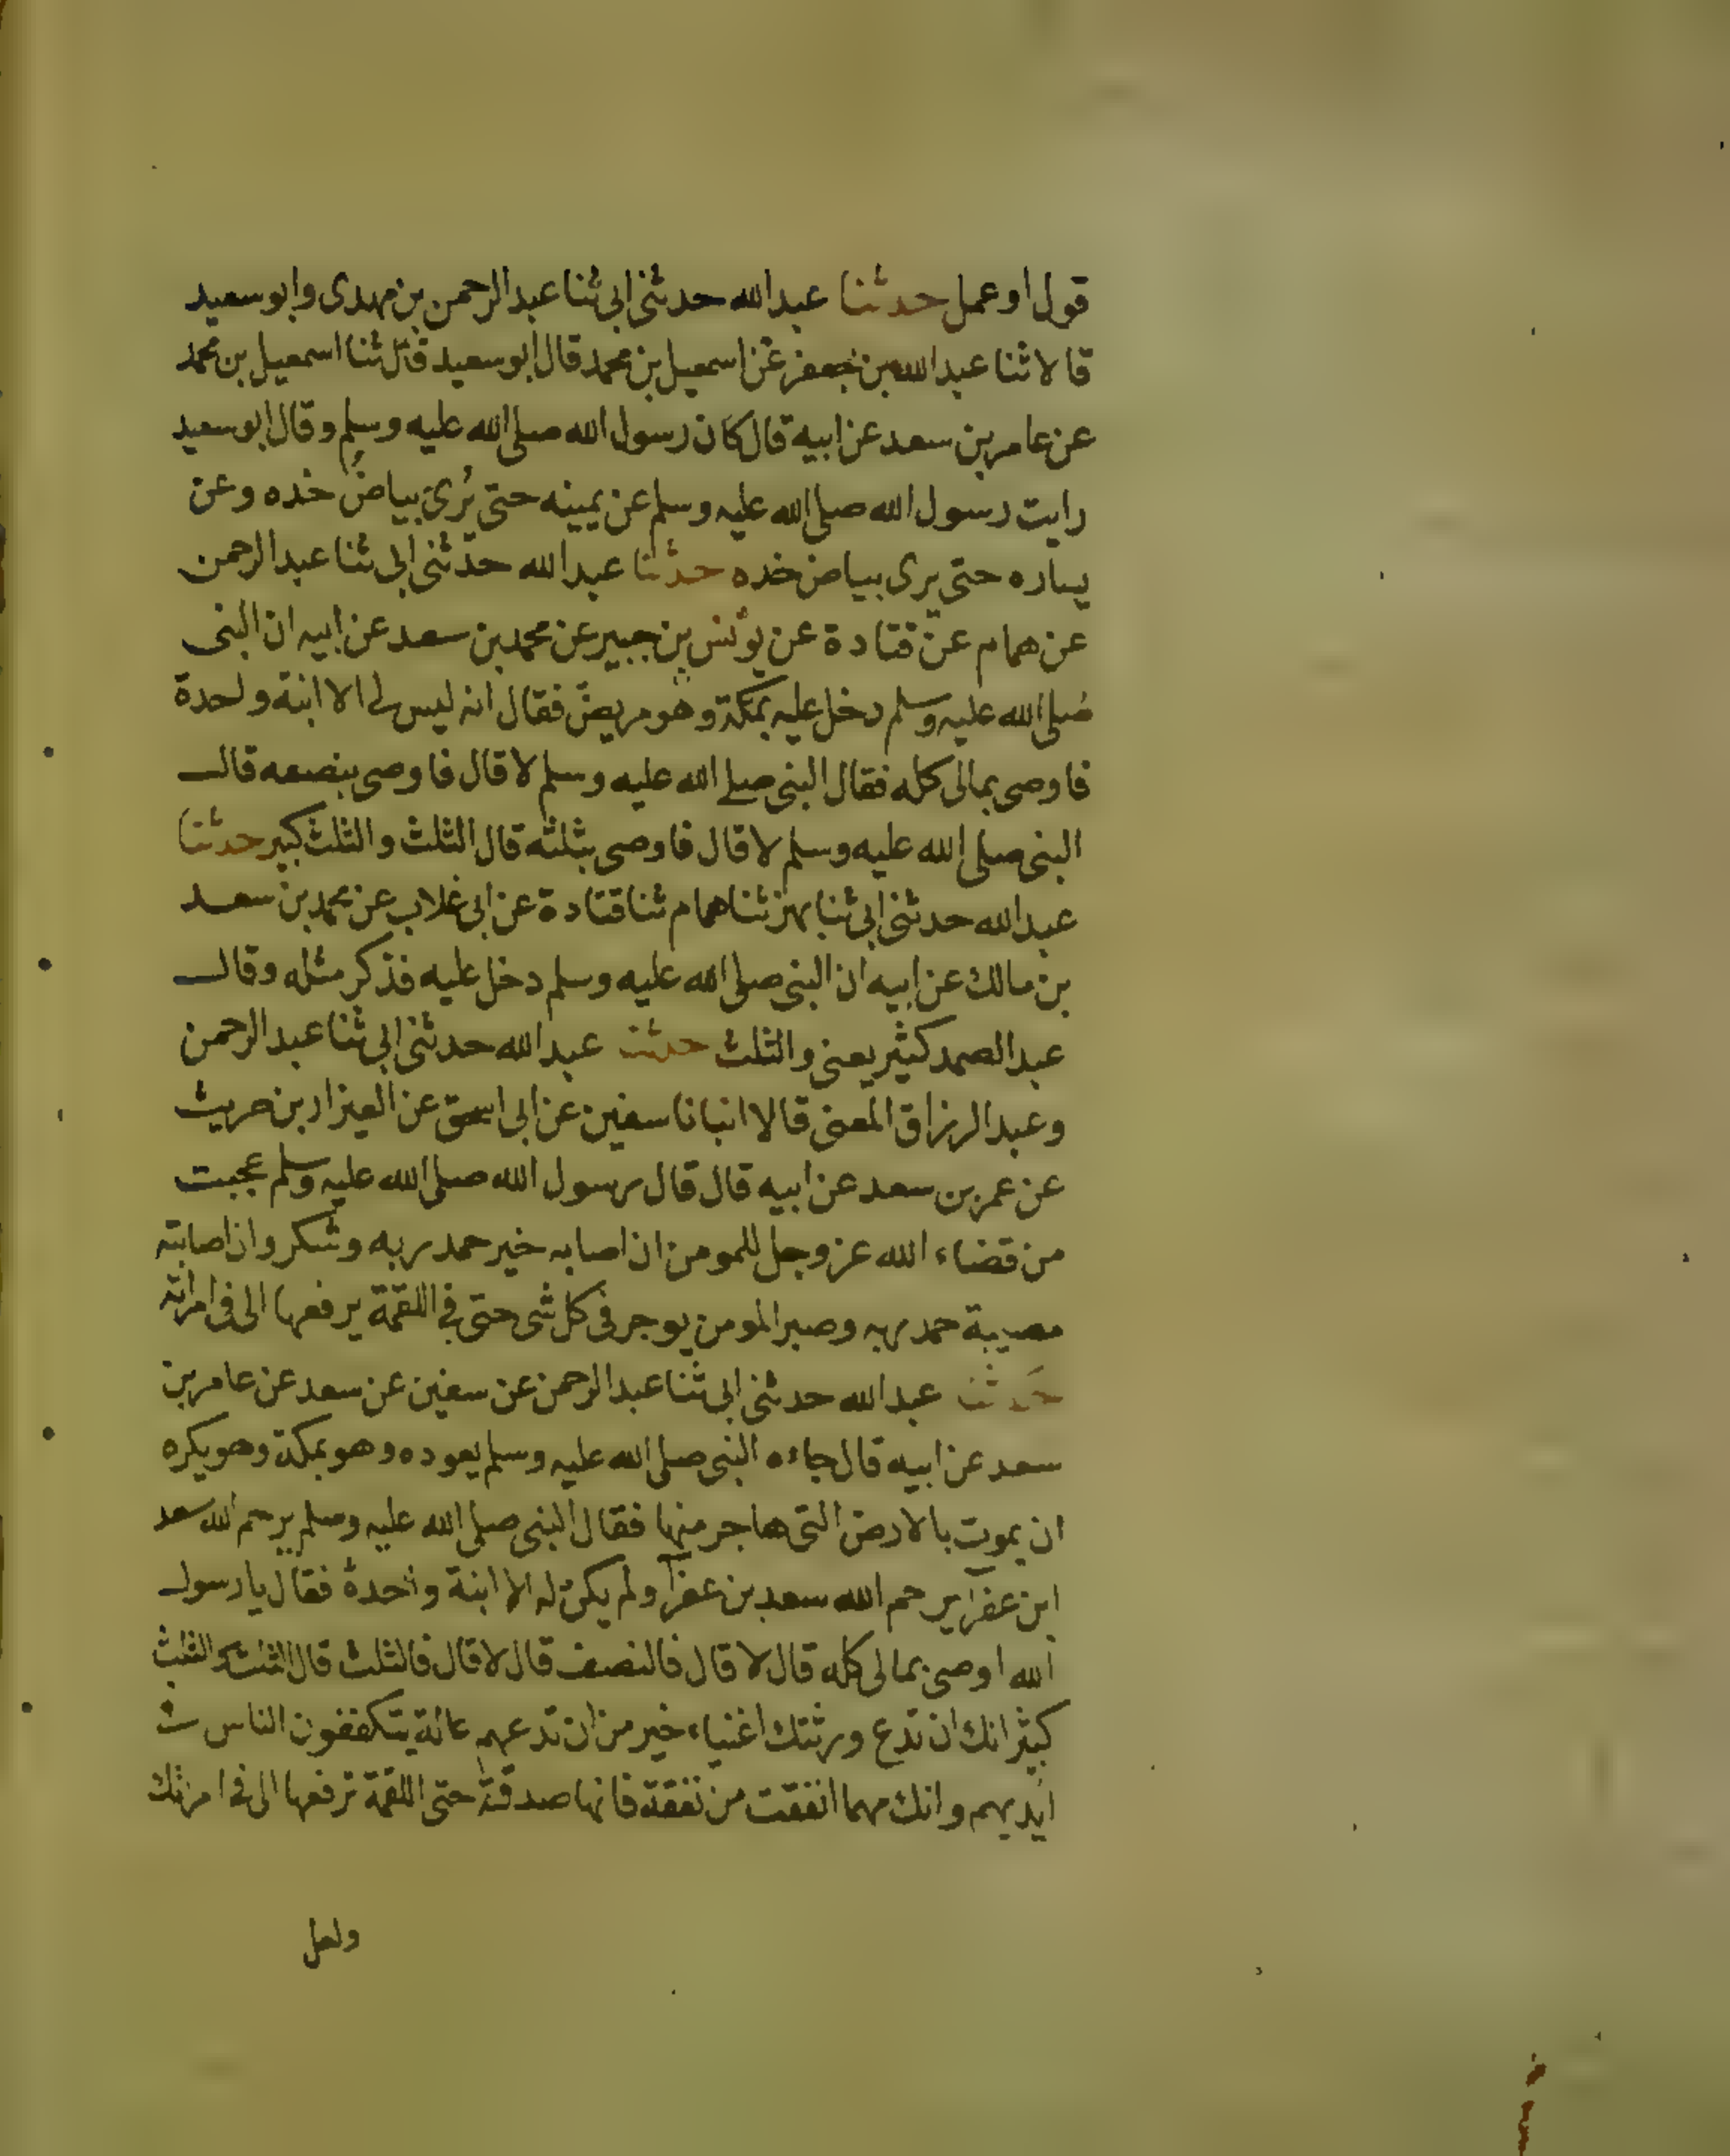 قول او عمل حدثنا عبدالله حدثنى ابى ثنا عبدالرحمن بن مهدى وابو سعيد
قالا ثنا عبدالله بن جعفر عن اسمعيل بن محمد قال ابو سعيد قال ثنا اسمعيل بن محمد
عن عامر بن سعد عن ابيه قال كان رسول الله صلى الله عليه وسلم وقال ابو سعيد
رايت رسول الله صلى الله عليه وسلم عن يمينه حتى يُرى بياضُ خده وعن
يساره حتى يرى بياض خده حدثنا عبدالله حدثنى ابى ثنا عبدالرحمن
عن همام عن قتادة عن يونس بن جبير عن محمد بن سعد عن ابيه ان النبى
صلى الله عليه وسلم دخل عليه بمكة وهو مريض فقال انه ليس لى الا ابنة واحدة
فاوصى بمالى كله فقال النبى صلى الله عليه وسلم لا قال فاوصى بنصفه قال
النبى صلى الله عليه وسلم لا قال فاوصى بثلثه قال الثلث والثلث كبير حدثنا
عبدالله حدثنى ابى ثنا بهز ثنا همام ثنا قتادة عن ابى غلاب عن محمد بن سعد
بن مالك عن ابيه ان النبى صلى الله عليه وسلم دخل عليه فذكر مثله وقال
عبدالصمد كثير يعنى والثلث حدثنا عبدالله حدثنى ابى ثنا عبدالرحمن
وعبدالرزاق المعنى قالا انبانا سفين عن ابى اسحق عن العيزار بن حريث
عن عمر بن سعد عن ابيه قال قال رسول الله صلى الله عليه وسلم عجبت
من قضاء الله عز وجل للمومن ان اصابه خير حمد ربه وشكر وان اصابته
مصيبة حمد ربه وصبر المومن يوجر فى كل شى حتى فى اللقمة يرفعها الى فى امراته
حدثنا عبدالله حدثنى ابى ثنا عبدالرحمن عن سفين عن سعد عن عامر بن
سعد عن ابيه قال جاءه النبى صلى الله عليه وسلم يعوده وهو بمكة وهو يكره
ان يموت بالارض التى هاجر منها فقال النبى صلى الله عليه وسلم يرحم الله سعد
ابن عفرآ يرحم الله سعد بن عفرآ ولم يكن له الا ابنة واحدة فقال يا رسول
الله اوصى بمالى كله قال لا قال فالنصف قال لا قال فالثلث قال الثلث والثلث
كثير انك ان تدع ورثتك اغنياء خير من ان تدعهم عالة يتكففون الناس
ايديهم وانك مهما انفقت من نفقة فانها صدقة حتى اللقمة ترفعها الى فى امراتك
ولعل